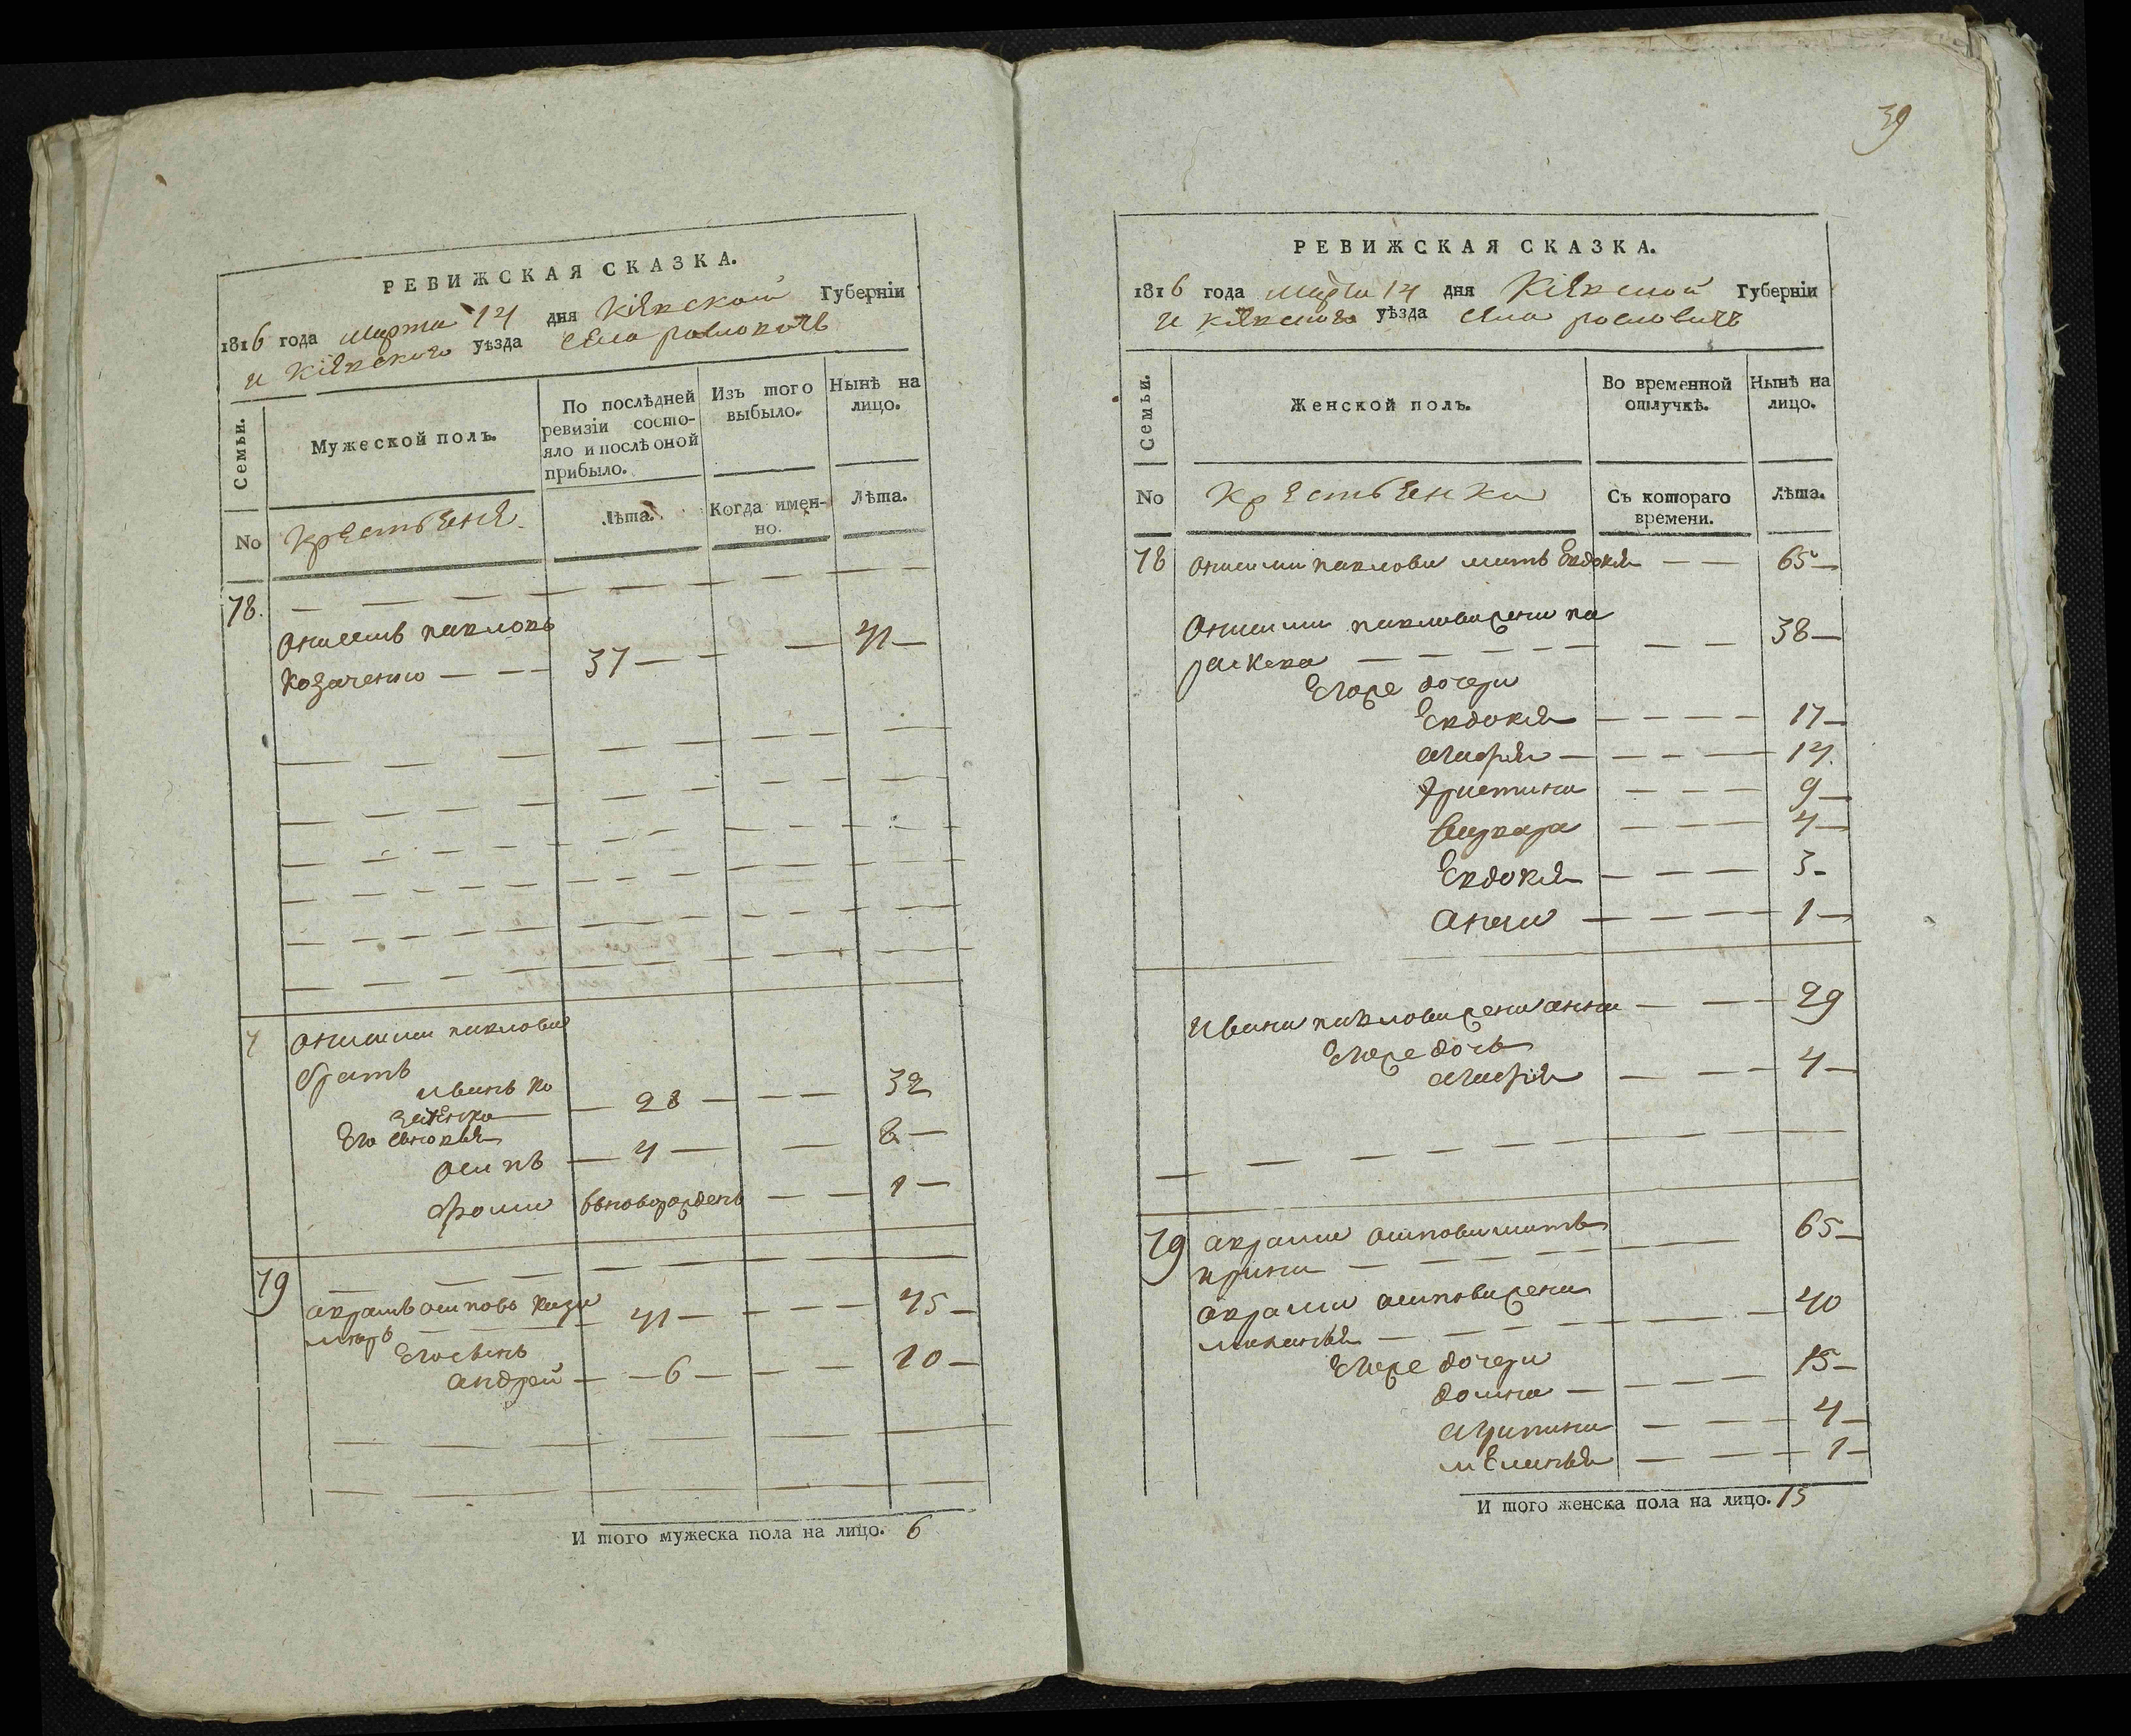 РЕВИЖСКАЯ СКАЗКА.
1816 года марта 14 дня Кіевской Губерніи
и Кіевского уѣзда села рословичъ
Семьи.
Мужеской полъ.
По послѣдней ревизіи состо-
яло и послѣ оной
прибыло.
Изъ того
выбыло.
Нынѣ на
лицо.
No
крестьене
Лѣта.
Когда имен-
но.
Лѣта.
78.
Онисимъ павловъ
козаченко — 37 — 41 —
Онисима павлова
братъ
иванъ ко
заченко — 28 — 32
Его сыновья
осипъ — 4 — 8 —
фома вновьрожденъ — 1 —
79
аврамъ осиповъ кази
миръ 41 — 45 —
Егосынъ
андрей — 6 — 10 —
И того мужеска пола на лицо. 6
39
РЕВИЖСКАЯ СКАЗКА.
1816 года марта 14 дня Кіевской Губерніи
и кіевского уѣзда села рословичъ
Семьи.
Женской полъ.
Во временной
отлучкѣ.
Нынѣ на
лицо.
No
крестьенки
Съ котораго
времени.
Лѣта.
78 онисима павлова мать Евдокія — 65 —
Онисима павлова жена па
раскева — 38 —
Егоже дочери
Евдокія — 17 —
агафія — 14.
христина — 9 —
варвара — 4 —
Евдокія — 3 —
анна — 1 —
ивана павлова жена анна — 29
Егоже дочь
агафія — 4 —
79 аврама осипова мать
ирина — 65 —
аврама осипова жена
маланья — 40
Егоже дочери
домна — 15 —
агрипина — 4 —
меланья — 1 —
И того женска пола на лицо. 15